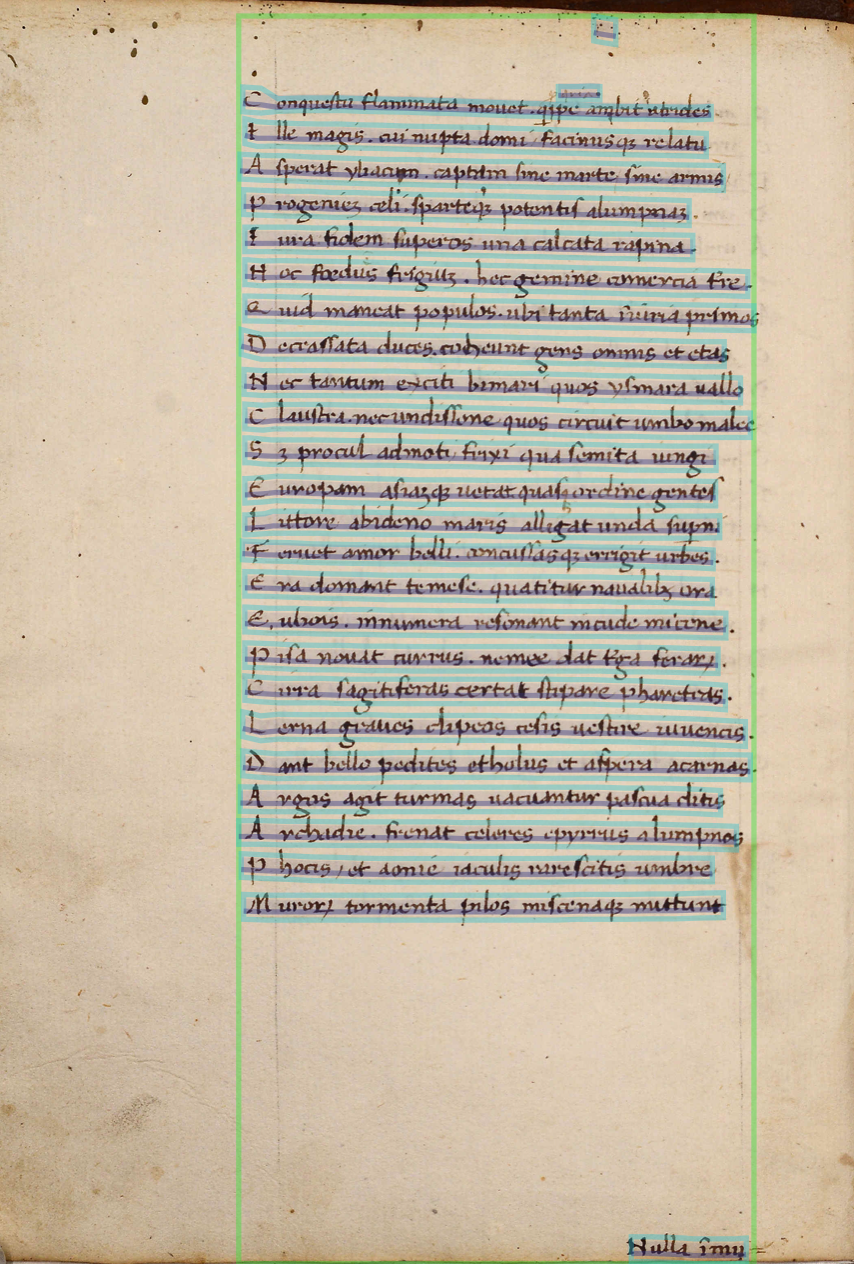 Conquestu flammata movet. qͥpe ambit atrides
Ille magis. cui nupta domi facinusqꝫ relatu
Asperat ybacum. captam sine marte sine armis
Progeniem celi. sparteqꝫ potentis alumpnaꝫ.
Iura fidem superos una calcata rapina.
Hoc foedus frigiuꝫ. hec gemine comercia t're.
Quid maneat populos. ubi tanta iniuria primos
Decrassata duces. coheunt gens omnis et etas
Nec tantum exciti bimari quos ysmara uallo
Claustra. nec undissone quos circuit umbo malee
Sꝫ procul admoti frixi qua semita iungi
Europam asiaꝫqꝫ uetat quasqꝫ ordine gentes
Littore abideno maris alligat unda supni
Feruet amor belli. concussasqꝫ errigit urbes.
Era domant temese. quatitur naualibꝫ ora
Eubois. innumera resonant incude micene.
Pisa nouat currus. nemee dat t'ga feraꝝ.
Cirra sagitiferas certat stipare pharetras.
Lerna graues clipeos cesis uestire iuuencis.
Dant bello pedites etholus et aspera acarnas.
Argus agit turmas uacuantur pascua ditis
Archadie. frenat celeres epyrrus alumpnos
Phocis, et aonie iaculis rarescitis umbre
Muroꝝ tormenta pilos miscenaqꝫ mittunt
Nulla īmu